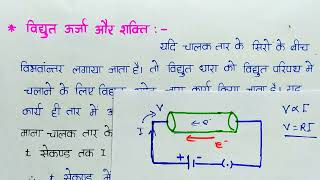 * विद्युत ऊर्जा और शक्ति :-
यदि चालक तार के सिरो के बीच
विभवांतर लगाया जाता है। तो विद्युत धारा को विद्युत परिपथ मे
चलाने के लिए विद्युत कार्य किया जाता है। यह
कार्य ही तार में
माना चालक तार के
t सेकण्ड तक I
∴ t सेकण्ड में
V
I
e⁻
e⁻
+
-
(.)
V ∝ I
V = RI